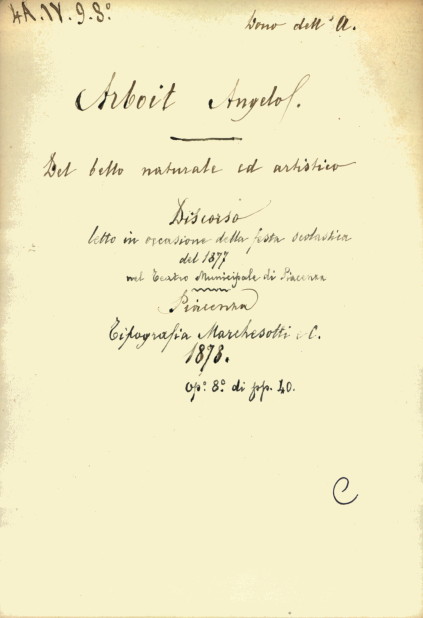 4A.IV.9.8.°
Dono dell' A.
Arboit Angelo.
Del bello naturale ed artistico
Discorso
letto in occasione della festa scolastica
del 1877
nel Teatro Municipale di Piacenza
Piacenza
Tipografia Marchesotti e C.
1878.
Op.° 8.° di pp. 40.
C